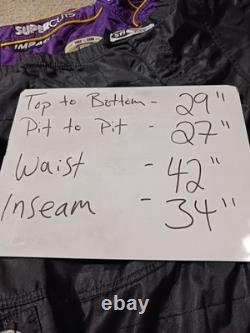 SUPERCUTS
IMPA
Top to Bottom - 29"
Pit to Pit - 27"
Waist - 42"
Inseam - 34"